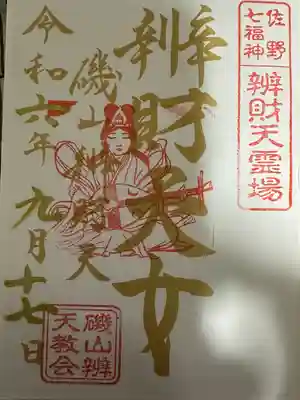 佐野
七福神
辨財天霊場
辨財天女
磯山辨財天
令和六年
九月十七日
磯山辨
天教会